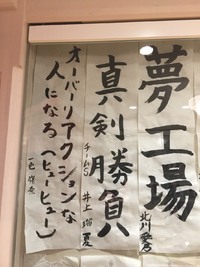 夢工場
北川愛乃
真剣勝負
チームS 井上瑠夏
オーバーリアクションな
人になる(ヒューヒュー)